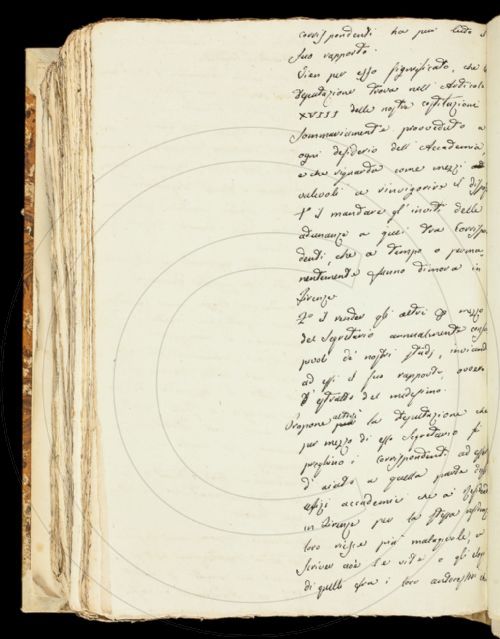 corrispondenti ha poi letto il
suo rapporto.
Vien per esso significato, che la
Deputazione trova nell'Articolo
XVIII delle nostre costituzioni
sommariamente provveduto a
ogni desiderio dell'Accademia
e che riguarda come mezzi
valevoli a rinvigorire il
1.º il mandare gl'inviti delle
adunanze a quei tra Corrispon
denti, che a tempo o perma-
nentemente fanno dimora in
Firenze
2.º il render gli altri per mezzo
del Segretario annualmente
de' nostri studj, inviando
ad essi il suo rapporto, ovvero
l'estratto del medesimo.
Propone altresì la Deputazione che
per mezzo di esso Segretario si
preghino i corrispondenti ad esser
d'aiuto a quella parte degli
ufizj accademici che a' residenti
in Firenze per la stessa
loro riesce più malagevole,
scriver cioè le vite o gli elogj
di quelli fra i loro